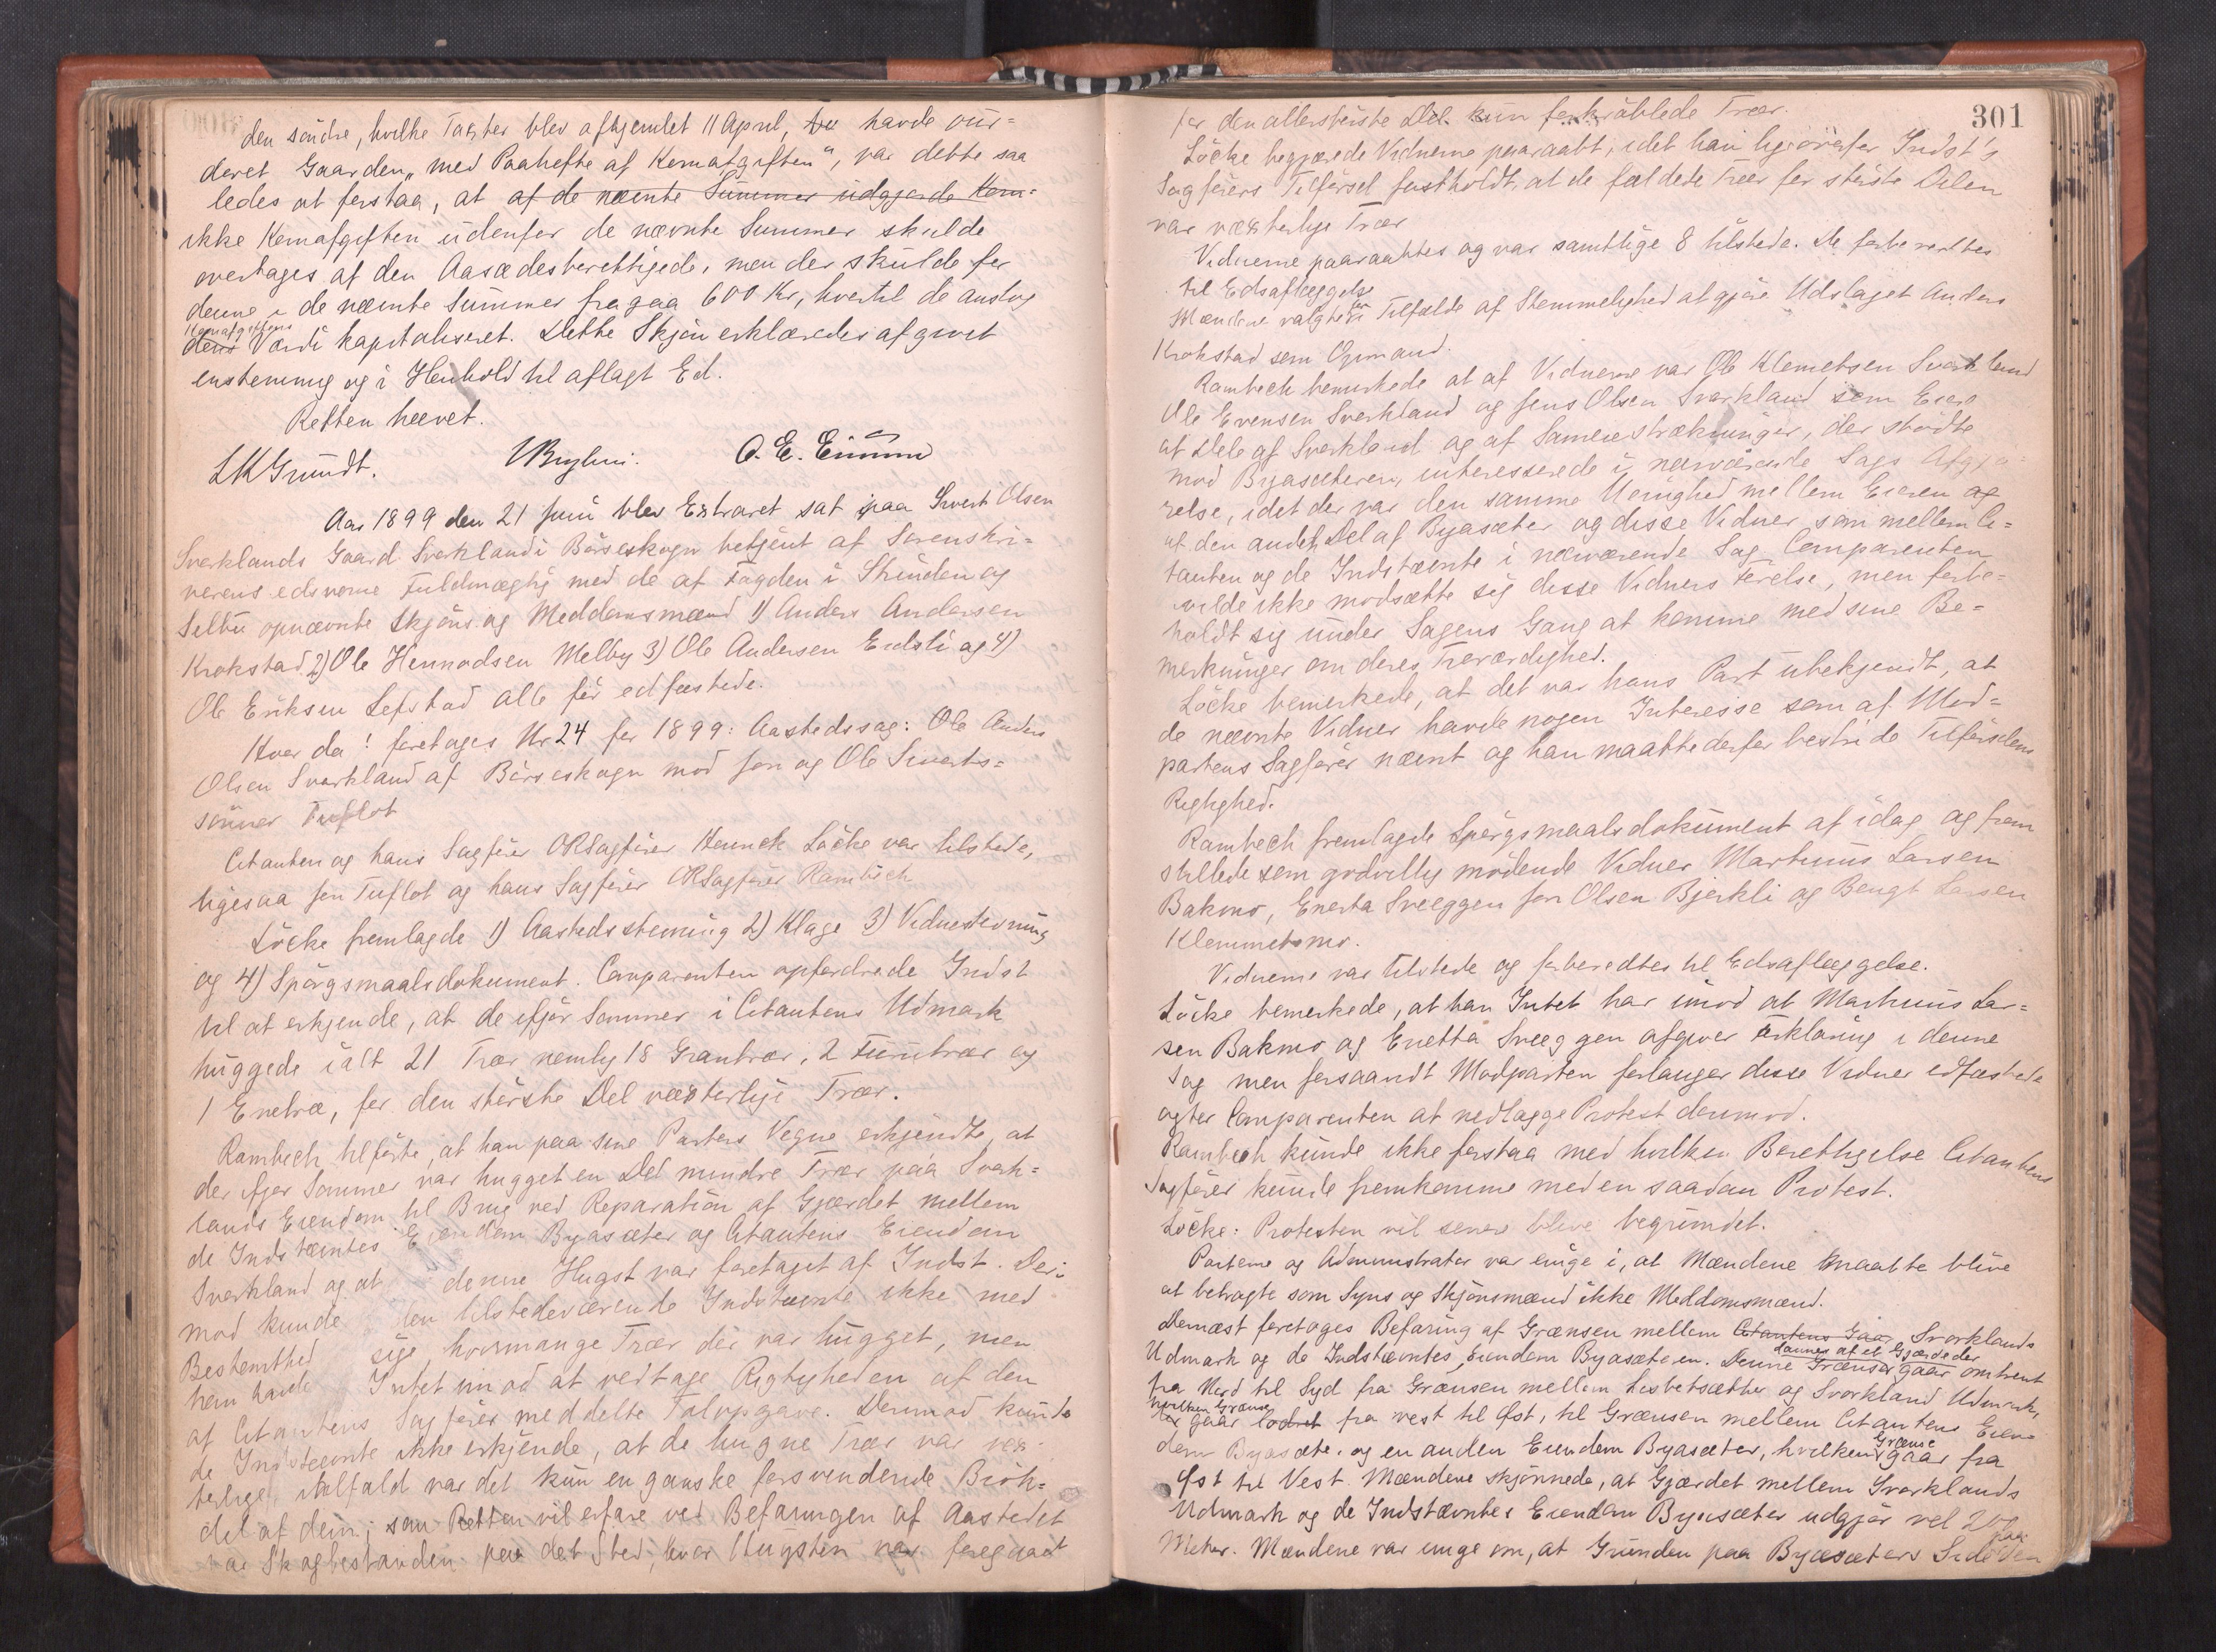 den søndre, hvilke Takster blev afhjemlet 11 April, havde vur=
deret Gaarden "med Paahefte af Kornafgiften", var dette saa
ledes at forstaa, at af de nævnte Summer udgjorde Korn=
ikke Kornafgiften udenfor de nævnte Summer skulde
overtages af den Aasædesberettigede, men der skulde for
denne i de nævnte Summer fragaa 600 Kr, hvortil de anslog
Kornafgiftens
dens Værdi kapitaliseret. Dette Skjøn erklæredes afgivet
enstemmig og i Henhold til aflagt Ed.
Retten hævet.
LKGrundt.
Aar 1899 den 21 Juni blev Extraret sat paa Sivert Olsen
Svorklands Gaard Svorkland i Børseskogn betjent af Sorenskri=
verens edsvorne Fuldmægtig med de af Fogden i Strinden og
Selbu opnævnte Skjøns og Meddomsmænd 1) Anders Andersen
Krokstad 2) Ole Hemmodsen Melby 3) Ole Andersen Eidsli og 4)
Ole Eriksen Lefstad alle før edfæstede.
Hvor da! foretoges Nr 24 for 1899: Aastedssag: Ole Anders
Olsen Svorkland af Børseskogn mod Jon og Ole Siverts=
sønner Tuflot
Citanten og hans Sagfører ORSagfører Henrick Løcke var tilstede,
ligesaa Jon Tuflot og hans Sagfører ORSagfører Rambech
Løcke fremlagde 1) Aastedsstevning 2) Klage 3) Vidnestevning
og 4) Spørgsmaalsdokument. Comparenten opfordrede Indst
til at erkjende, at de ifjor Sommer i Citantens Udmark
huggede ialt 21 Trær nemlig 18 Grantrær, 2 Furutrær og
1 Enetræ, for den største Del væxterlige Trær.
Rambech tilførte, at han paa sine Parters Vegne erkjendte, at
der ifjor Sommer var hugget en Del mindre Trær paa Svork=
lands Eiendom til Brug ved Reparation af Gjærdet mellem
de Indstævntes Eiendom Byasæter og Citantens Eiendom
Svorkland og at denne Hugst var foretaget af Indst. Der=
mod kunde den tilstedeværende Indstævnte ikke med
Bestemthed sige hvormange Trær der var hugget, men
han havde Intet imod at vedtage Rigtigheden af den
af Citantens Sagfører meddelte Talopgave. Dermod kunde
de Indstævnte ikke erkjende, at de hugne Trær var væx=
terlige, ialfald var det kun en ganske forsvindende Brøk=
del af dem; som Retten vil erfare ved Befaringen af Aastedet
var Skogbestanden paa det Sted, hvor Hugsten var foregaaet
301
for den allerstørste Del kun forkrøblede Trær.
Løcke begjærede Vidnerne paaraabt, idet han ligeoverfor Indst's
Sagførers Tilførsel fastholdt, at de fældede Trær for største Delen
var væxterlige Trær
Vidnerne paaraabtes og var samtlige 8 tilstede. De forberedtes
til Edsaflæggelse
Mændene valgte for Tilfælde af Stemmelighed at gjøre Udslaget Anders
Krokstad som Opmand.
Rambech bemerkede at af Vidnerne var Ole Klemetsen Svorkland
Ole Evensen Svorkland og Jens Olsen Svorkland som Eiere
at Dele af Svorkland og af Sameiestrækninger, der stødte
mod Byasæteren, interesserede i nærværende Sags Afgjø=
relse, idet der var den samme Uenighed mellem Eieren af
af den anden Del af Byasæter og disse Vidner som mellem Ci=
tanten og de Indstævnte i nærværende Sag. Comparenten
vilde ikke modsætte sig disse Vidners Førelse, men forbe=
holdt sig under Sagens Gang at komme med sine Be=
merkninger om deres Troværdighed.
Løcke bemerkede, at det var hans Part ubekjendt, at
de nævnte Vidner havde nogen Interesse som af Mod=
partens Sagfører nævnt og han maatte derfor bestride Tilførselens
Rigtighed.
Rambech fremlagde Spørgsmaalsdokument af idag og frem
stillede som godvillig mødende Vidner Martinus Larsen
Bakmo, Enetta Sveeggen Jon Olsen Bjerkli og Bengt Larsen
Klemmetsmo.
Vidnerne var tilstede og forberedtes til Edsaflæggelse.
Løcke bemerkede, at han Intet har imod at Martinus Lar=
sen Bakmo og Enetta Sveeggen afgiver Erklæring i denne
Sag men forsaavidt Modparten forlanger disse Vidner edfæstede
agter Comparenten at nedlægge Protest dermod.
Rambech kunde ikke forstaa med hvilken Berettigelse Citantens
Sagfører kunde fremkomme med en saadan Protest.
Løcke: Protesten vil senere blive begrundet.
Parterne og Administrator var enige i, at Mændene maatte blive
at betragte som Syns og Skjønsmænd ikke Meddomsmænd.
Dernæst foretoges Befaring af Grænsen mellem Citantens Gaar Svorklands
dannes af et Gjærde der
Udmark og de Indstævntes Eiendom Byasæteren. Denne Grænse gaar omtrent
fra Nord til Syd fra Grænsen mellem Lisbetsætter og Svorkland Udmark,
hvilken Grænse
der gaar lodret fra vest til Øst, til Grænsen mellem Citantens Eien=
dom Byasæte. og en anden Eiendom Byasæter, hvilken Grænse gaar fra
Øst til Vest. Mændene skjønnede, at Gjærdet mellem Svorklands
Udmark og de Indstævntes Eiendom Byasæter udgjør vel 200
Meter. Mændene var enige om, at Grunden paa Byasæters Side af den